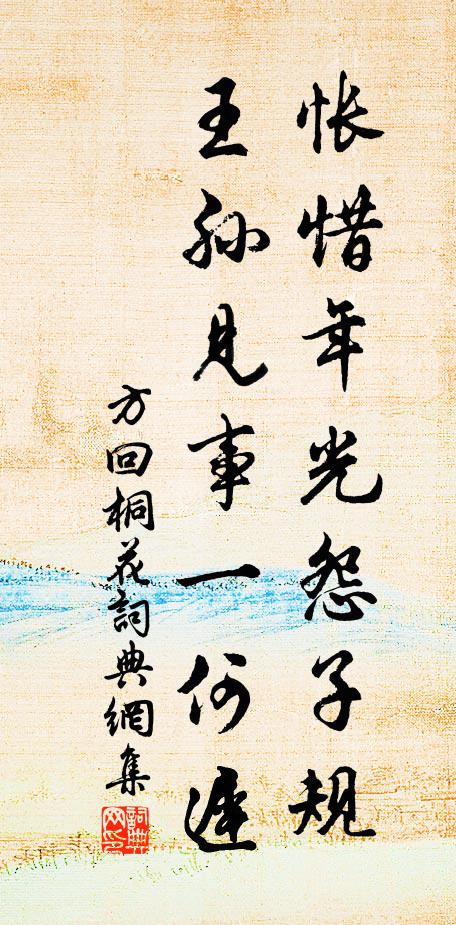 怅惜年光怨子规
王孙见事一何迟
方回桐花詞典網集
詞典网印